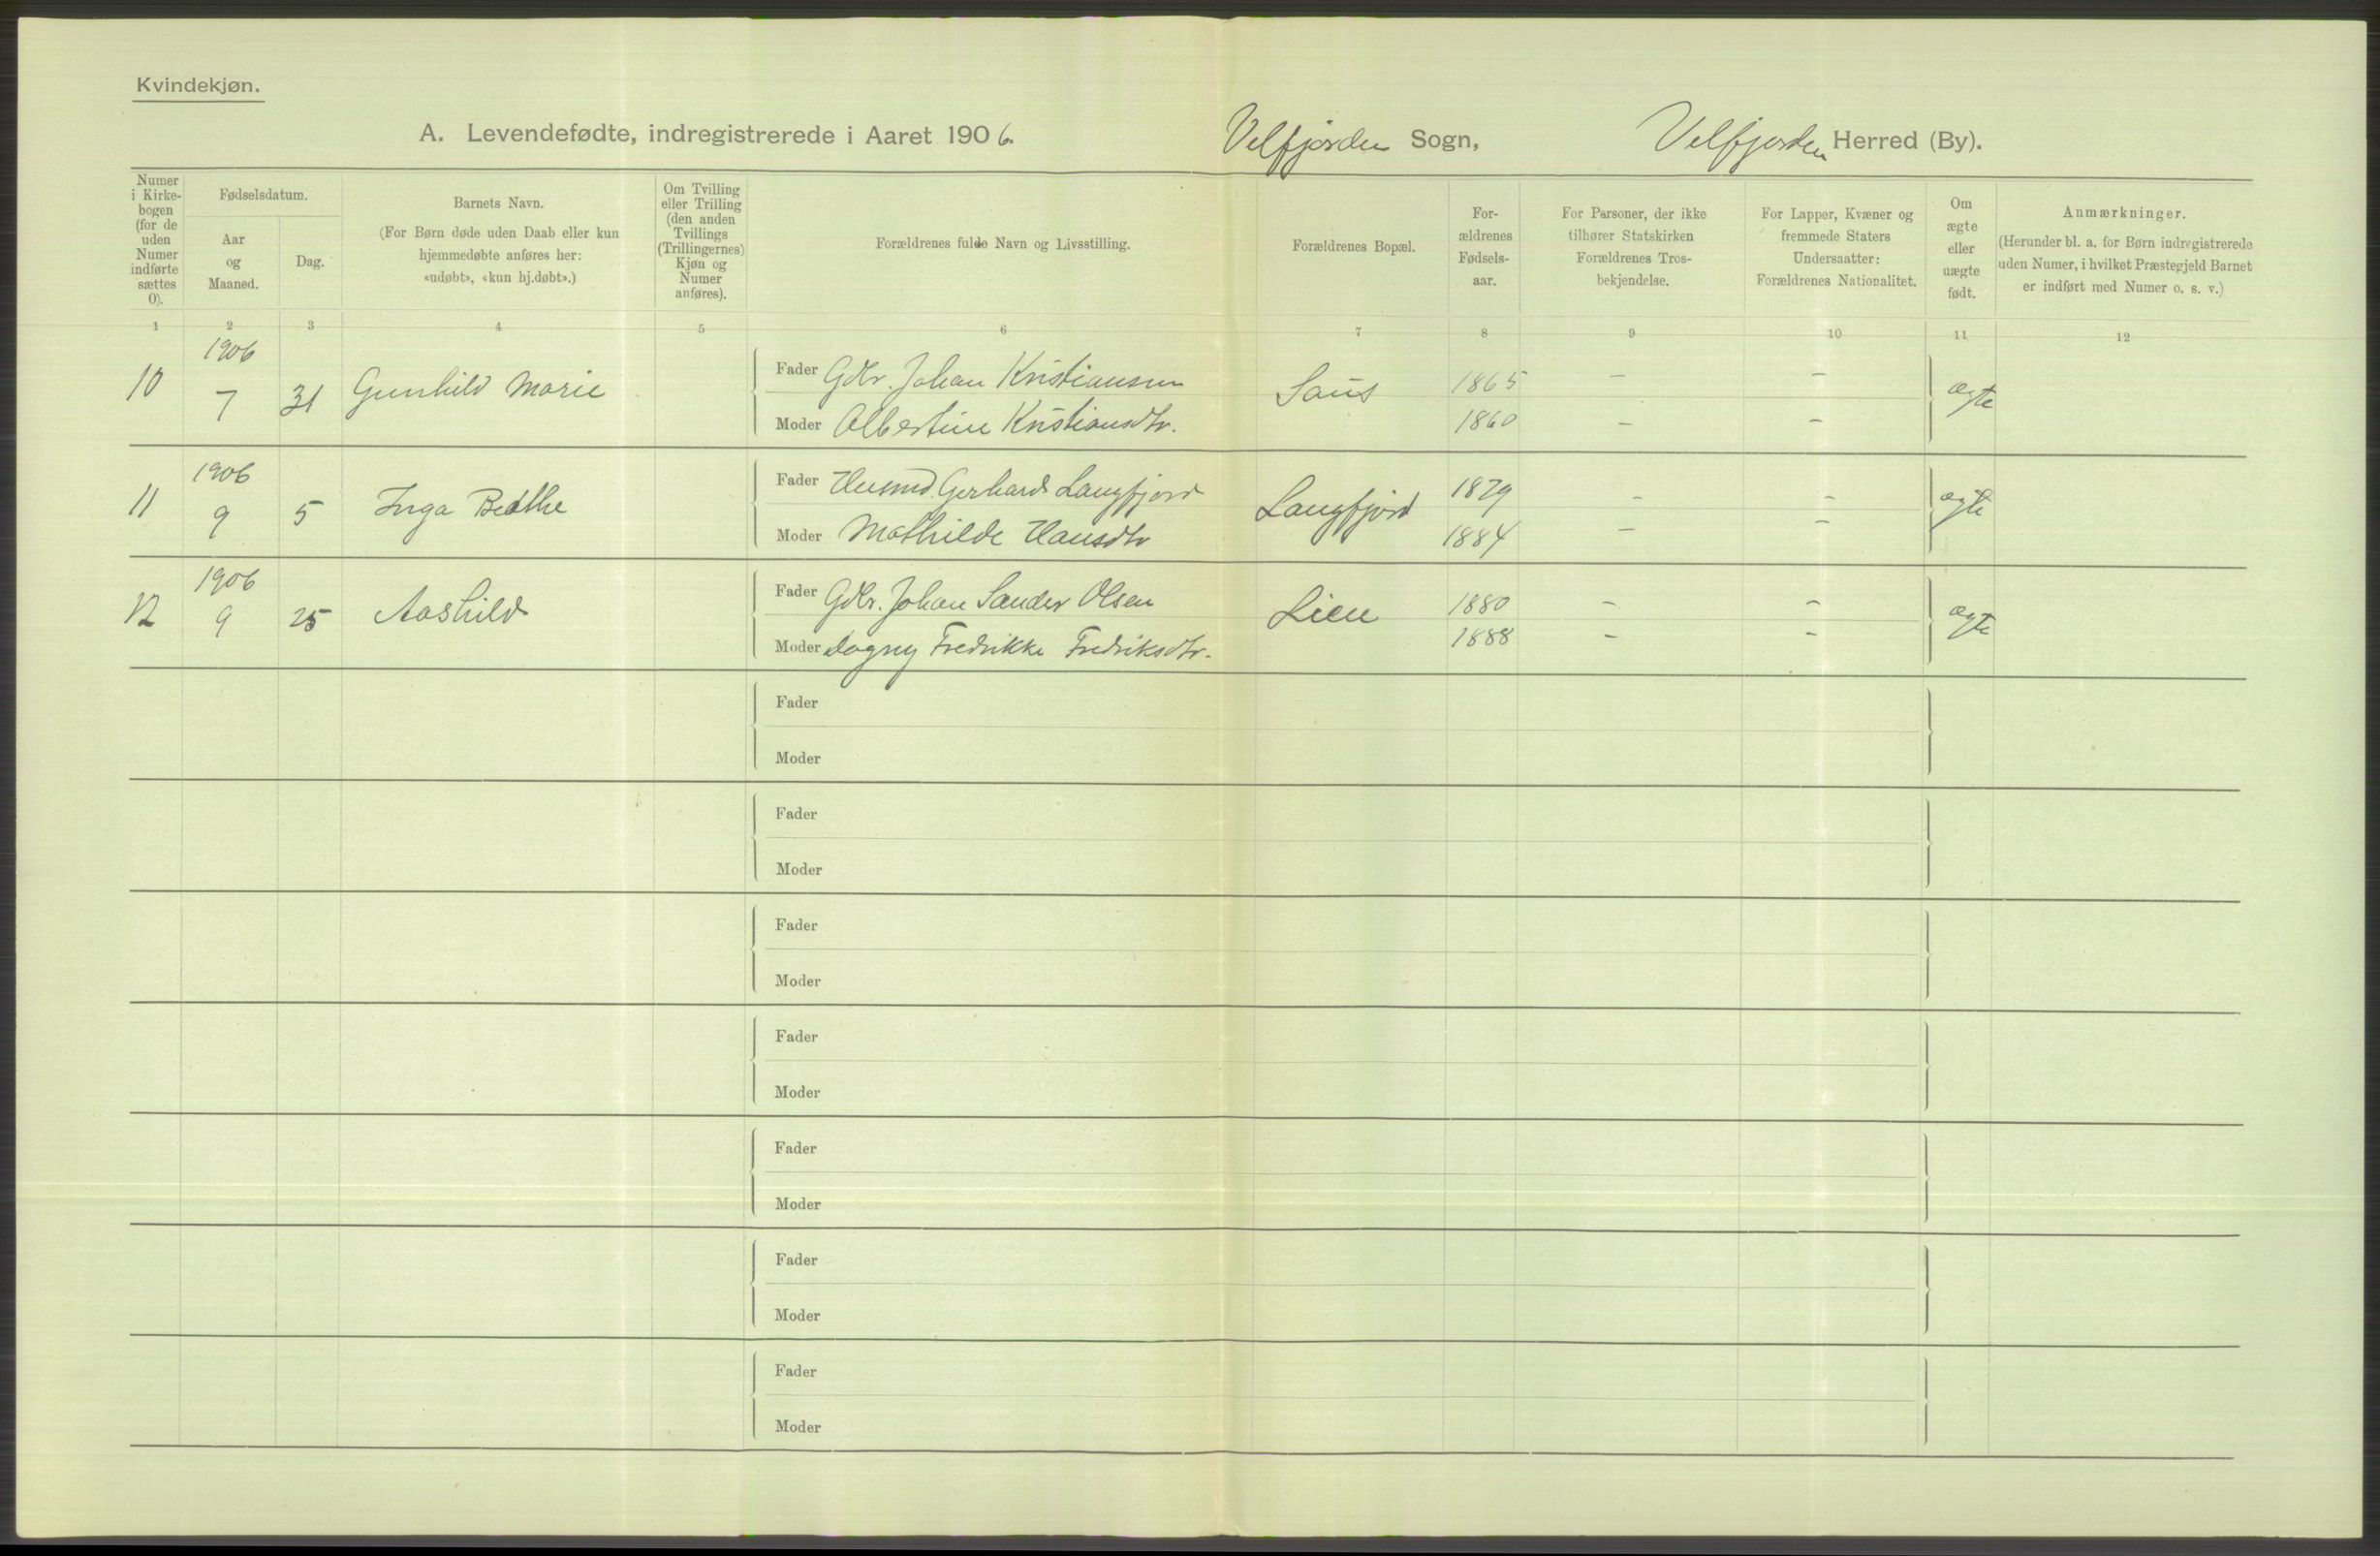 Kvindekjøn.
A. Levendefødte, indregistrerede i Aaret 1906. Velfjorden Sogn, Velfjorden Herred (By).
Numer i Kirkebogen (for de uden Numer indførte sættes 0).
Fødselsdatum.
Aar og Maaned.
Dag.
Barnets Navn.
(For Børn døde uden Daab eller kun hjemmedøbte anføres her: «udøbt», «kun hj.døbt».)
Om Tvilling eller Trilling (den anden Tvillings (Trillingernes) Kjøn og Numer anføres).
Forældrenes fulde Navn og Livsstilling.
Forældrenes Bopæl.
Forældrenes Fødselsaar.
For Personer, der ikke tilhører Statskirken Forældrenes Trosbekjendelse.
For Lapper, Kvæner og fremmede Staters Undersaatter: Forældrenes Nationalitet.
Om ægte eller uægte født.
Anmærkninger.
(Herunder bl. a. for Børn indregistrerede uden Numer, i hvilket Præstegjeld Barnet er indført med Numer o. s. v.)
1 2 3 4 5 6 7 8 9 10 11 12
10 1906 7 31 Gunhild Marie Fader Gdbr. Johan Kristiansen Saus 1865 – – ægte
Moder Albertine Kristiansdtr. 1860 – –
11 1906 9 5 Inga Beathe Fader Husmd. Gerhard Langfjord Langfjord 1879 – – ægte
Moder Mathilde Hansdtr 1884 – –
12 1906 9 25 Aashild Fader Gdbr. Johan Sander Olsen Lien 1880 – – ægte
Moder Dagny Fredrikke Fredriksdtr. 1888 – –
Fader
Moder
Fader
Moder
Fader
Moder
Fader
Moder
Fader
Moder
Fader
Moder
Fader
Moder